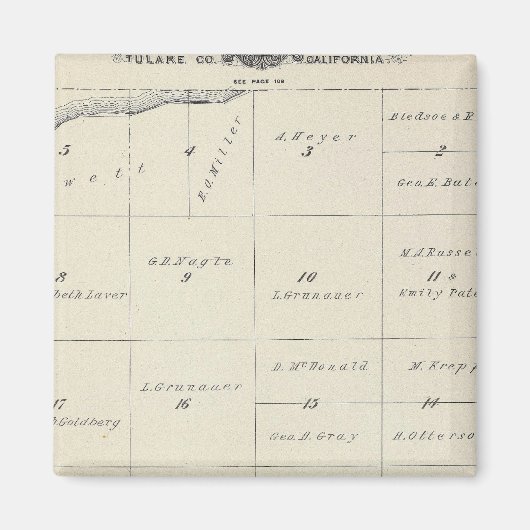 TULARE CO. CALIFORNIA
SEE PAGE 108
5
wett
4
E.O. Miller
A. Heyer
3
Bledsoe &
2
Geo. E.
8
beth Laver
G.D. Nagle
9
10
L. Grunauer
M.A. Russe
11 &
Emily Pate
17
Goldberg
L. Grunauer
16
D. McDonald
15
Geo. H. Gray
M. Krepp
14
H. Otterso